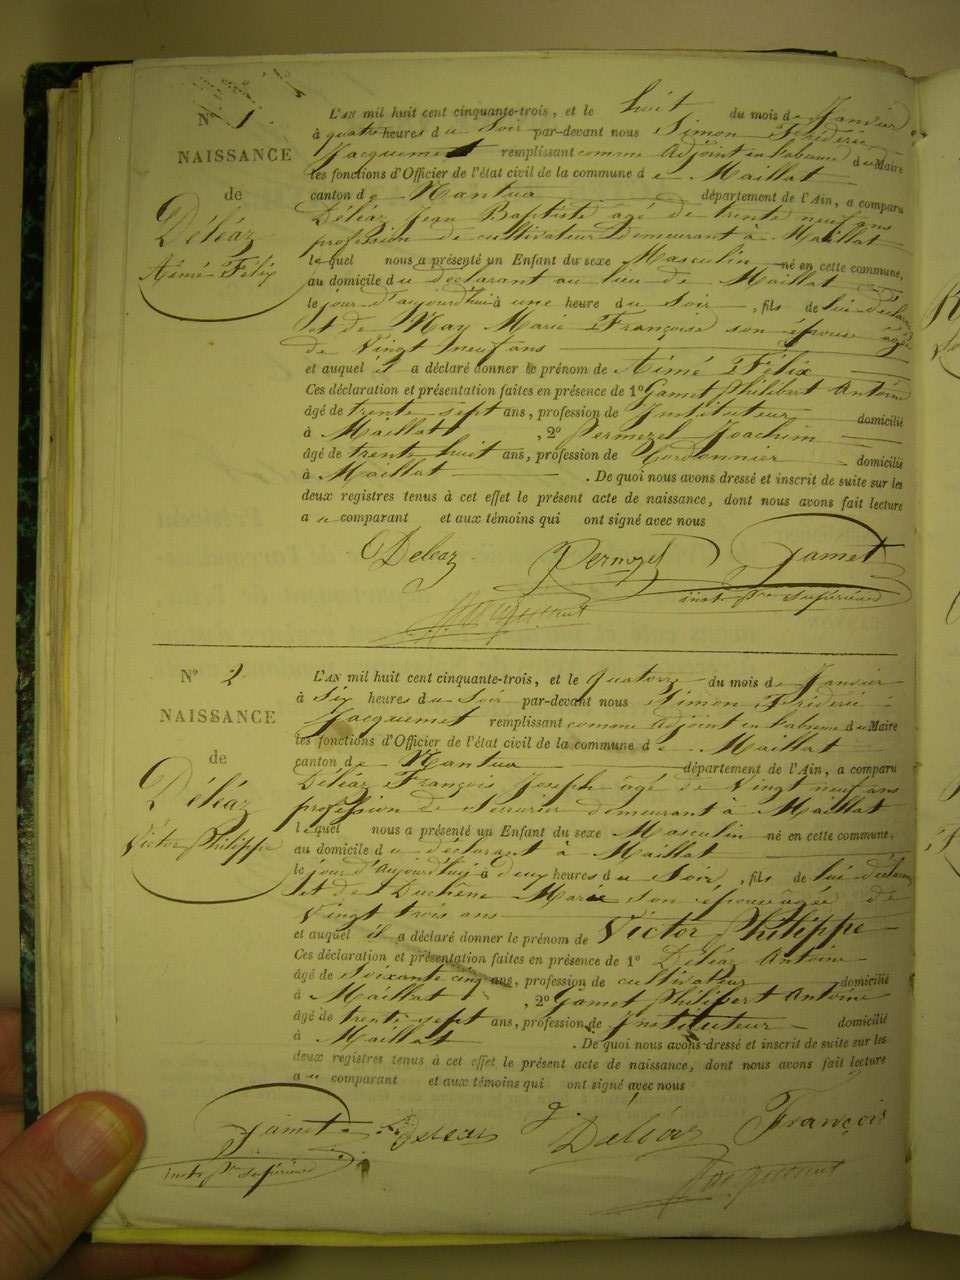 N° 1.
NAISSANCE
de
Déléaz
Aimé Félix
L'AN mil huit cent cinquante-trois, et le huit du mois de Janvier
à quatre heures du Soir par-devant nous Simon Frédéric
Jacquemet remplissant comme Adjoint en l'absence du Maire
les fonctions d'Officier de l'état civil de la commune de Maillat
canton de Nantua département de l'Ain, a comparu
Déléaz Jean Baptiste âgé de trente neuf ans
profession de cultivateur demeurant à Maillat
lequel nous a présenté un Enfant du sexe Masculin né en cette commune,
au domicile du déclarant au lieu de Maillat
le jour d'aujourd'hui à une heure du Soir, fils de lui déclarant
et de Nay Marie Françoise son épouse âgée
de Vingt neuf ans
et auquel il a déclaré donner le prénom de Aimé Félix
Ces déclaration et présentation faites en présence de 1° Gamet Philibert Antoine
âgé de trente sept ans, profession de Instituteur domicilié
à Maillat, 2° Permezel Joachim
âgé de trente huit ans, profession de Cordonnier domicilié
à Maillat. De quoi nous avons dressé et inscrit de suite sur les
deux registres tenus à cet effet le présent acte de naissance, dont nous avons fait lecture
au comparant et aux témoins qui ont signé avec nous
Deleaz Permezel Gamet
instr pre supérieur
Jacquemet
N° 2
NAISSANCE
de
Déléaz
Victor Philippe
L'AN mil huit cent cinquante-trois, et le Quatorze du mois de Janvier
à Six heures du Soir par-devant nous Simon Frédéric
Jacquemet remplissant comme Adjoint en l'absence du Maire
les fonctions d'Officier de l'état civil de la commune de Maillat
canton de Nantua département de l'Ain, a comparu
Déléaz François Joseph âgé de Vingt neuf ans
profession de Serrurier demeurant à Maillat
lequel nous a présenté un Enfant du sexe Masculin né en cette commune,
au domicile du déclarant à Maillat
le jour d'Aujourd'hui à deux heures du Soir, fils de lui déclarant
et de Duchêne Marie son épouse âgée de
Vingt trois ans
et auquel il a déclaré donner le prénom de Victor Philippe
Ces déclaration et présentation faites en présence de 1° Déléaz Antoine
âgé de Soixante cinq ans, profession de cultivateur domicilié
à Maillat, 2° Gamet Philibert Antoine
âgé de trente sept ans, profession de Instituteur domicilié
à Maillat. De quoi nous avons dressé et inscrit de suite sur les
deux registres tenus à cet effet le présent acte de naissance, dont nous avons fait lecture
au comparant et aux témoins qui ont signé avec nous
Gamet Déléaz François
instr pre supérieur
Jacquemet